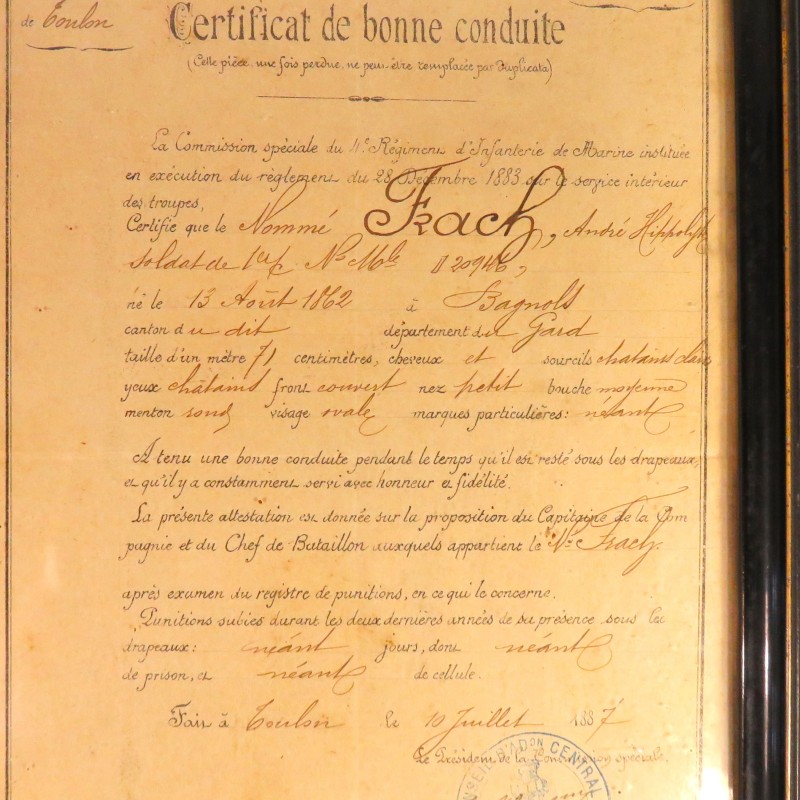 de Toulon
Certificat de bonne conduite
(Cette pièce, une fois perdue, ne peut-être remplacée par Duplicata)
La Commission spéciale du 4e Régiment d'Infanterie de Marine instituée
en exécution du règlement du 28 Décembre 1883 sur le service intérieur
des troupes,
Certifie que le Nommé Frach, André Hippolyte
soldat de 1ere No Mle 20946,
né le 13 Août 1862 à Bagnols
canton du dit département du Gard
taille d'un mètre 71 centimètres, cheveux et sourcils chatains clairs
yeux châtains front couvert nez petit bouche moyenne
menton rond visage ovale marques particulières: néant
A tenu une bonne conduite pendant le temps qu'il est resté sous les drapeaux,
et qu'il y a constamment servi avec honneur et fidélité.
La présente attestation est donnée sur la proposition du Capitaine de la Com
pagnie et du Chef de Bataillon auxquels appartient le Né Frach.
après examen du registre de punitions, en ce qui le concerne.
Punitions subies durant les deux dernières années de sa présence sous les
drapeaux: néant jours, dont néant
de prison, et néant de cellule.
Fait à Toulon le 10 Juillet 1887
Le Président de la Commission spéciale.
CONSEIL D'ADON CENTRAL